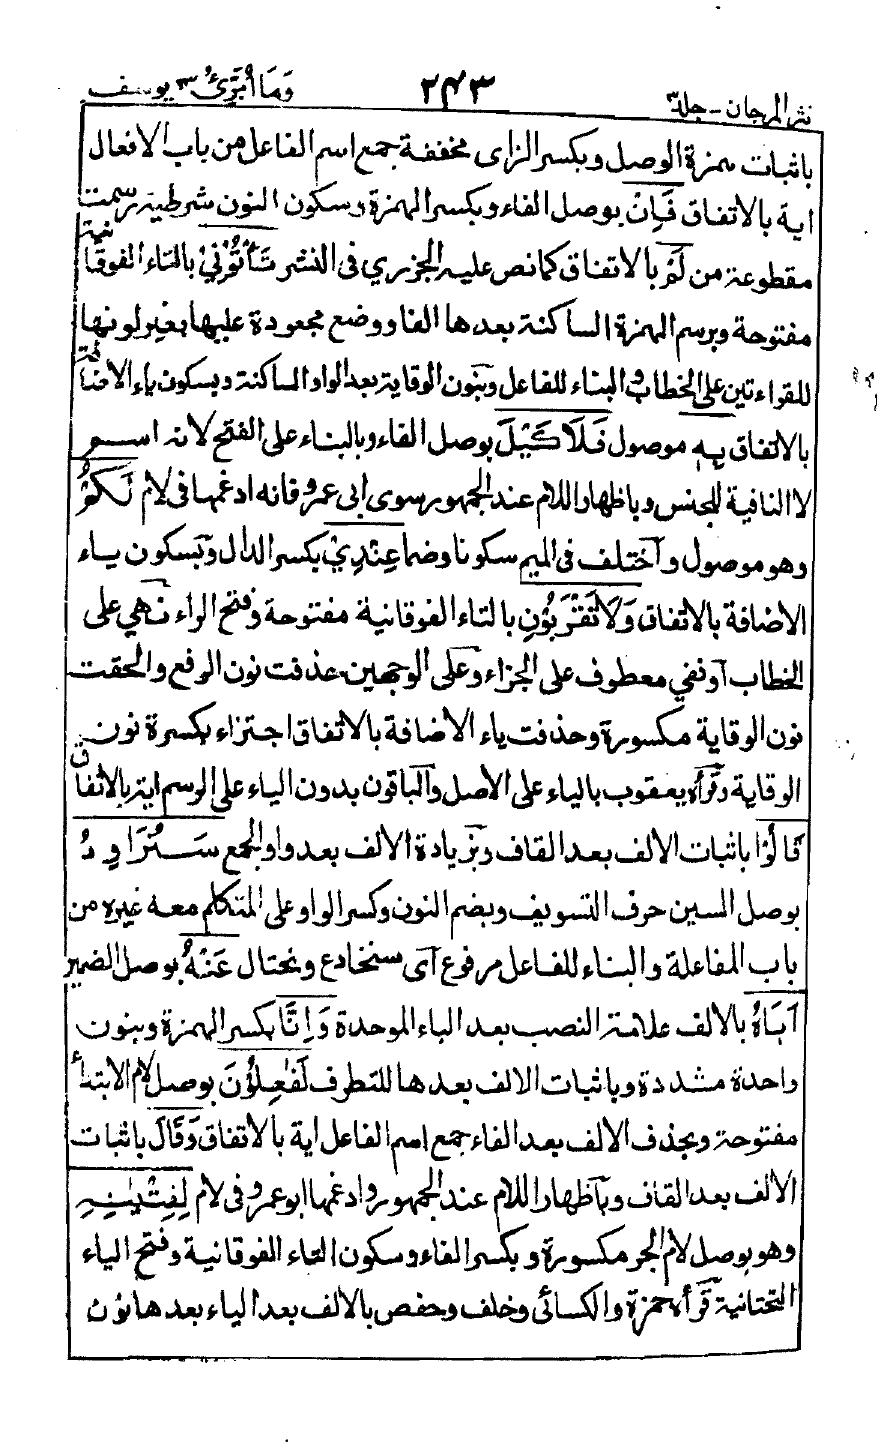 نثر المرجان - جلد ٣ ٢٤٣ وَمَا أُبَرِّئُ ١٣ يوسف
باثبات همزة الوصل وبكسر الزاى مخففة جمع اسم الفاعل من باب الافعال
اية بالاتفاق فَاِنْ بوصل الفاء وبكسر الهمزة وسكون النون شرطية رسمت
مقطوعة من لَمْ بالاتفاق كما نص عليه الجزري فى النشر تَأْتُوْنِيْ بالتاء الفوقانية
مفتوحة وبرسم الهمزة الساكنة بعدها الفا ووضع مجعودة عليها بغير لونها
للقراءتين على الخطاب والبناء للفاعل وبنون الوقاية بعد الواو الساكنة وبسكون ياء الاضافة
بالاتفاق بِهٖ موصول فَلَا كَيْلَ بوصل الفاء وبالبناء على الفتح لانه اسم
لا النافية للجنس وباظهار اللام عند الجمهور سوى ابى عمرو فانه ادغمها فى لام لَكُمْ
وهو موصول واختلف فى الميم سكونا وضما عِنْدِيْ بكسر الدال وبسكون ياء
الاضافة بالاتفاق وَلَا تَقْرَبُوْنِ بالتاء الفوقانية مفتوحة وفتح الراء نهي على
الخطاب او نفي معطوف على الجزاء وعلى الوجهين حذفت نون الرفع والحقت
نون الوقاية مكسورة وحذفت ياء الاضافة بالاتفاق اجتزاء بكسرة نون
الوقاية وقرأه يعقوب بالياء على الاصل والباقون بدون الياء على الرسم اية بالاتفاق
قَالُوْا باثبات الالف بعد القاف وبزيادة الالف بعد واو الجمع سَنُرَاوِدُ
بوصل السين حرف التسويف وبضم النون وكسر الواو على المتكلم معه غيره من
باب المفاعلة والبناء للفاعل مرفوع اى سنخادع ونحتال عَنْهُ بوصل الضمير
اَبَاهُ بالالف علامة النصب بعد الباء الموحدة وَاِنَّا بكسر الهمزة وبنون
واحدة مشددة وباثبات الالف بعدها للتطرف لَفٰعِلُوْنَ بوصل لام الابتداء
مفتوحة وبحذف الالف بعد الفاء جمع اسم الفاعل اية بالاتفاق وَقَالَ باثبات
الالف بعد القاف وباظهار اللام عند الجمهور وادغمها ابو عمرو فى لام لِفِتْيٰنِهِ
وهو بوصل لام الجر مكسورة وبكسر الفاء وسكون التاء الفوقانية وفتح الياء
التحتانية قرأه حمزة والكسائى وخلف وحفص بالالف بعد الياء بعدها نون